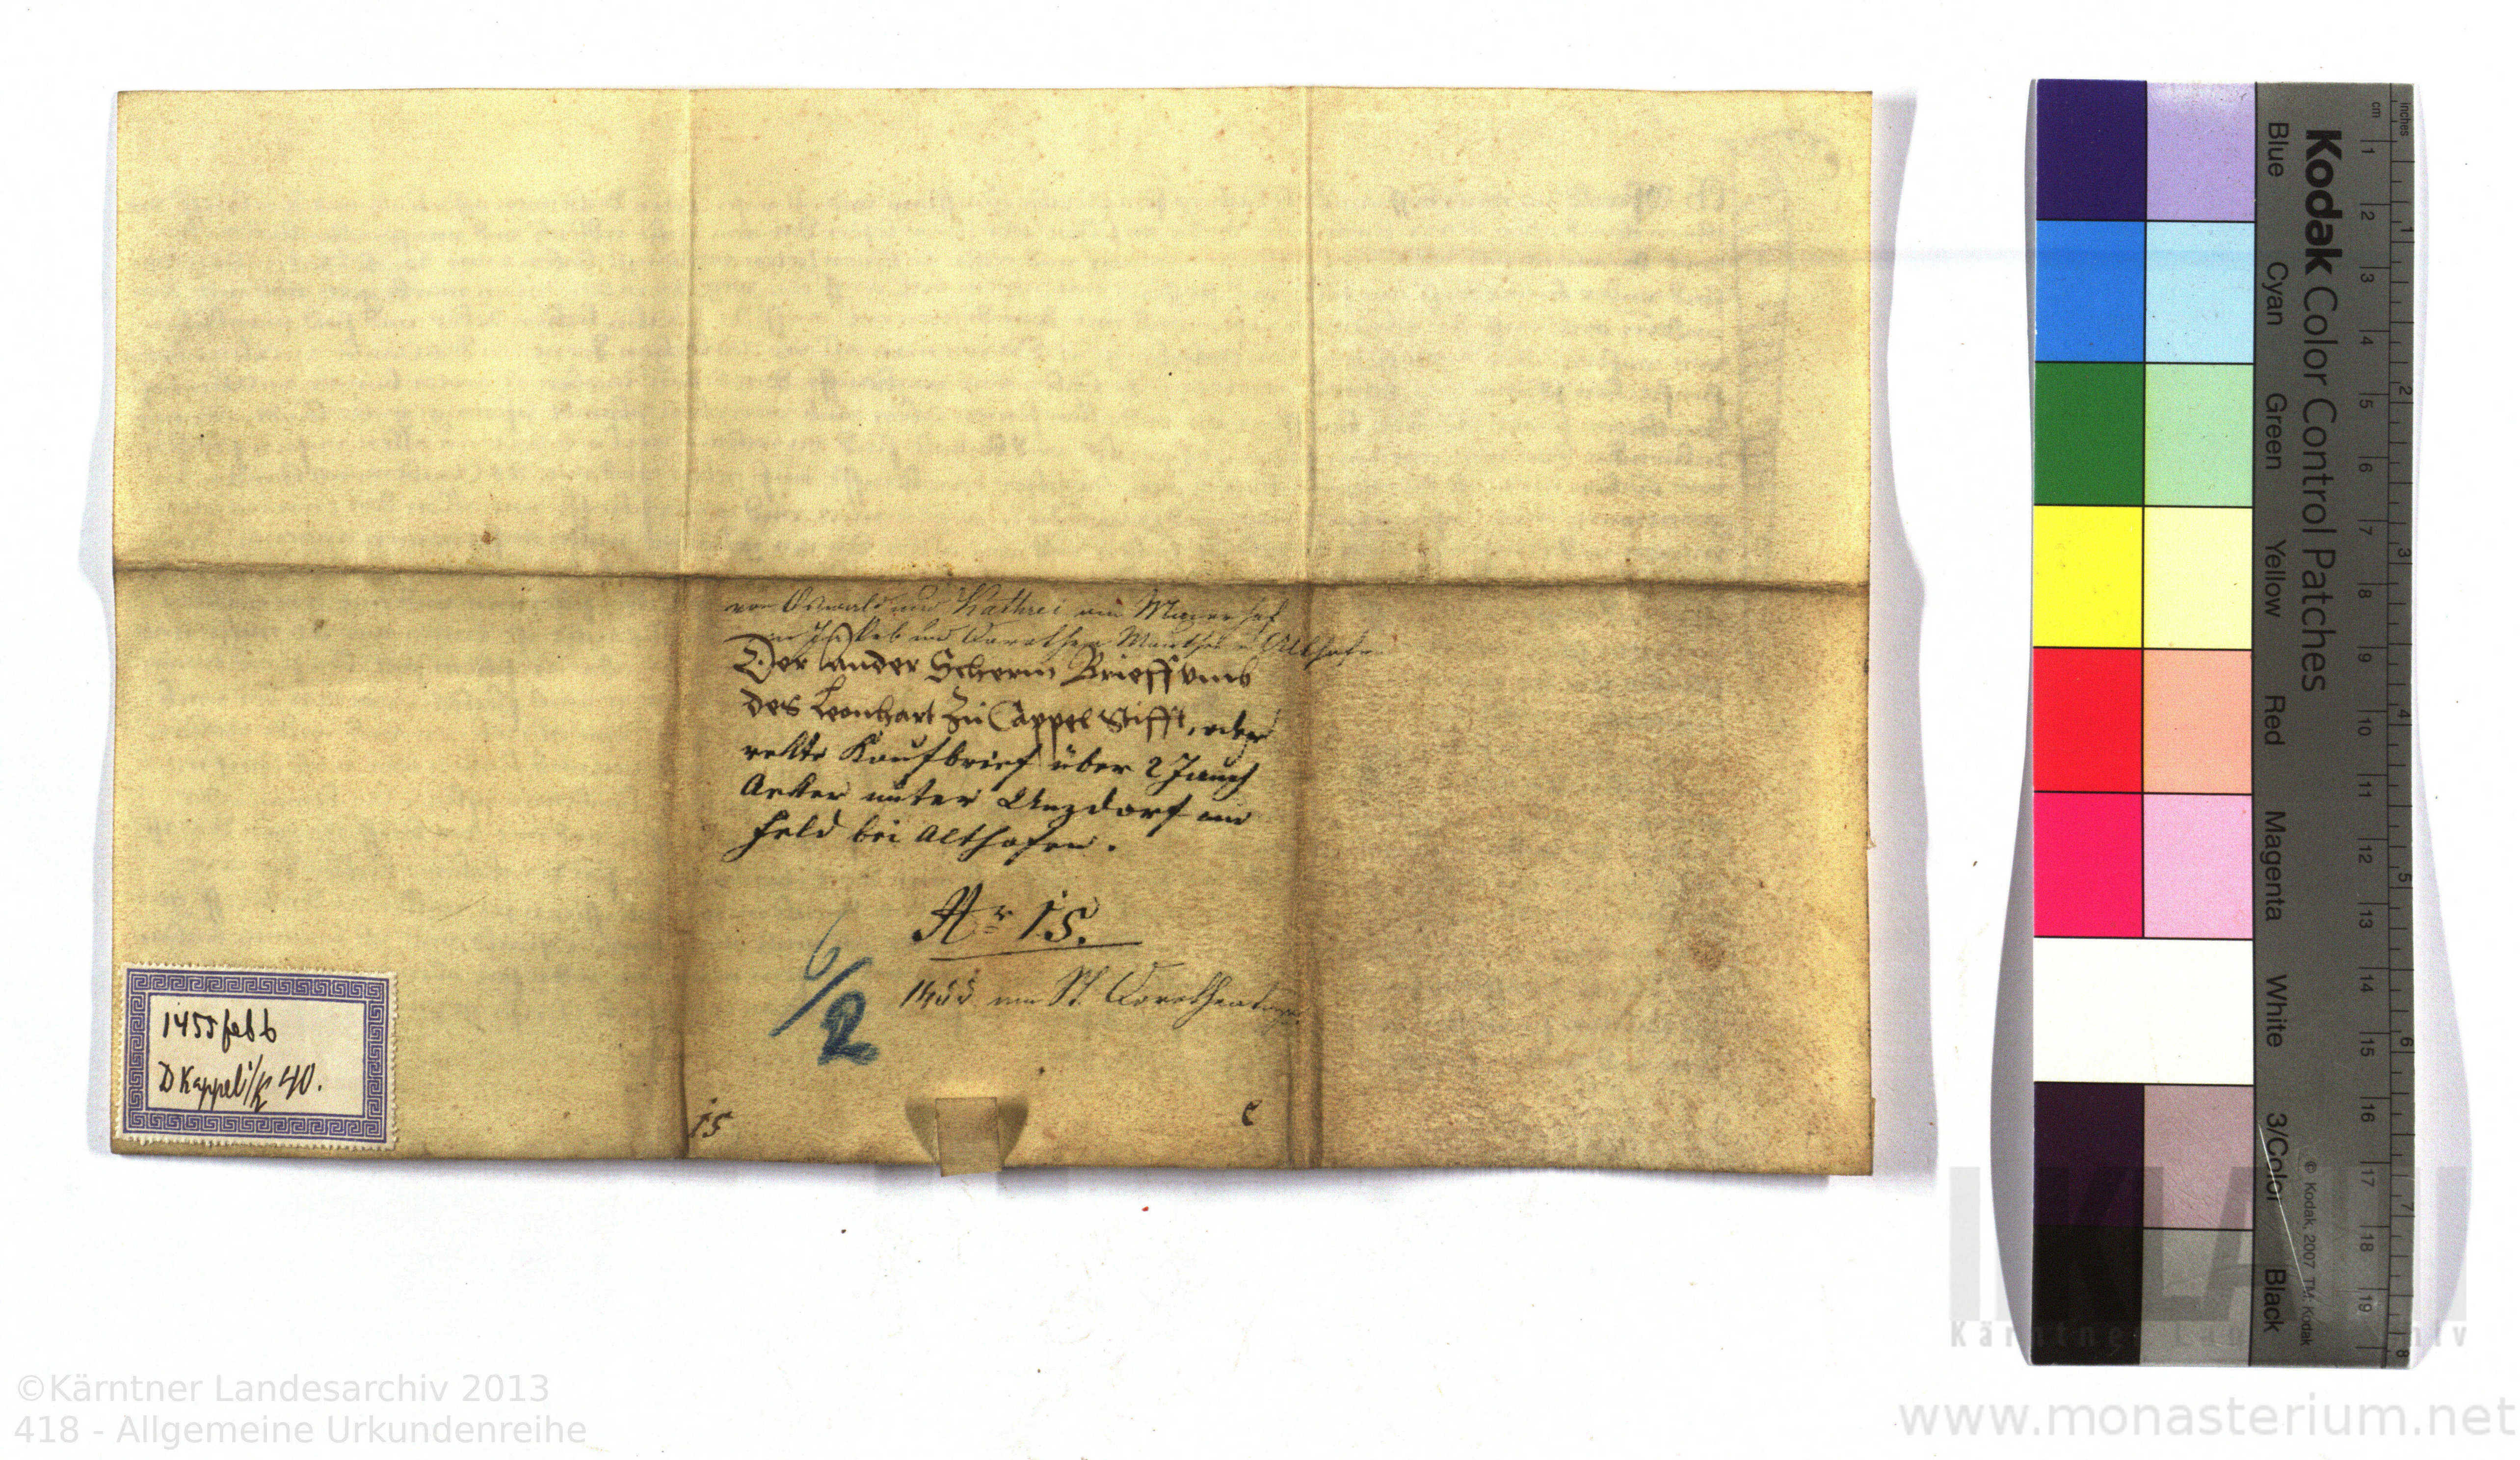 von Oswald und Kathrei am Mayerhof
an Jakob und Dorothea zu Althofen
Der ander Scherm Brieff vmb
des Leonhart Zu Cappel Stifft, oder
Kaufbrief über 2 Jauch
Aeker unter Unzdorf am
Feld bei Althofen.
Nr 15.
6/2
1455 am St. Dorotheatage
15
1455 feb 6
D Kappel i/K 40.
Kodak Color Control Patches
Blue Cyan Green Yellow Red Magenta White 3/Color Black
© Kodak, 2007 TM: Kodak
cm 1 2 3 4 5 6 7 8 9 10 11 12 13 14 15 16 17 18 19
inches 1 2 3 4 5 6 7 8
KLA
Kärntner Landesarchiv
©Kärntner Landesarchiv 2013
418 - Allgemeine Urkundenreihe
www.monasterium.net